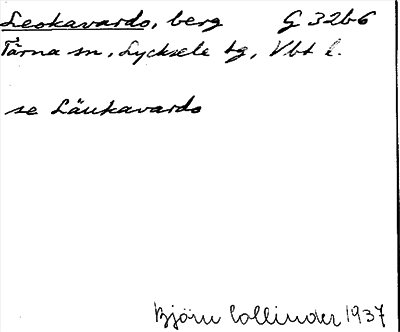 Leokavardo, berg G 32b6
Tärna sn, Lycksele tg, Vbt l.
se Läukavardo
Björn Collinder 1937